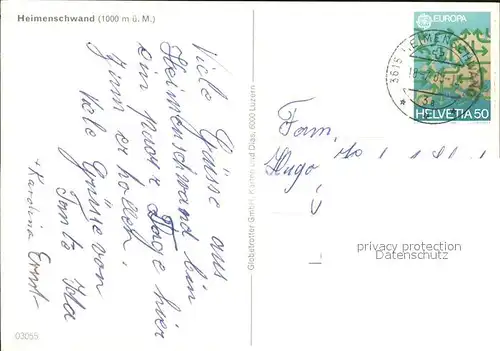 Heimenschwand (1000 m ü. M.)
Viele Grüsse aus
Heimenschwand bin
ein paar Tage hier
zum erholen.
Viele Grüsse von
Tante Ida
+ Karolina Ernst
03055
Globetrotter GmbH, Karten und Dias, 6000 Luzern
EUROPA
HELVETIA 50
3615 HEIMENSCHWAND
Fam.
Hugo
privacy protection
Datenschutz